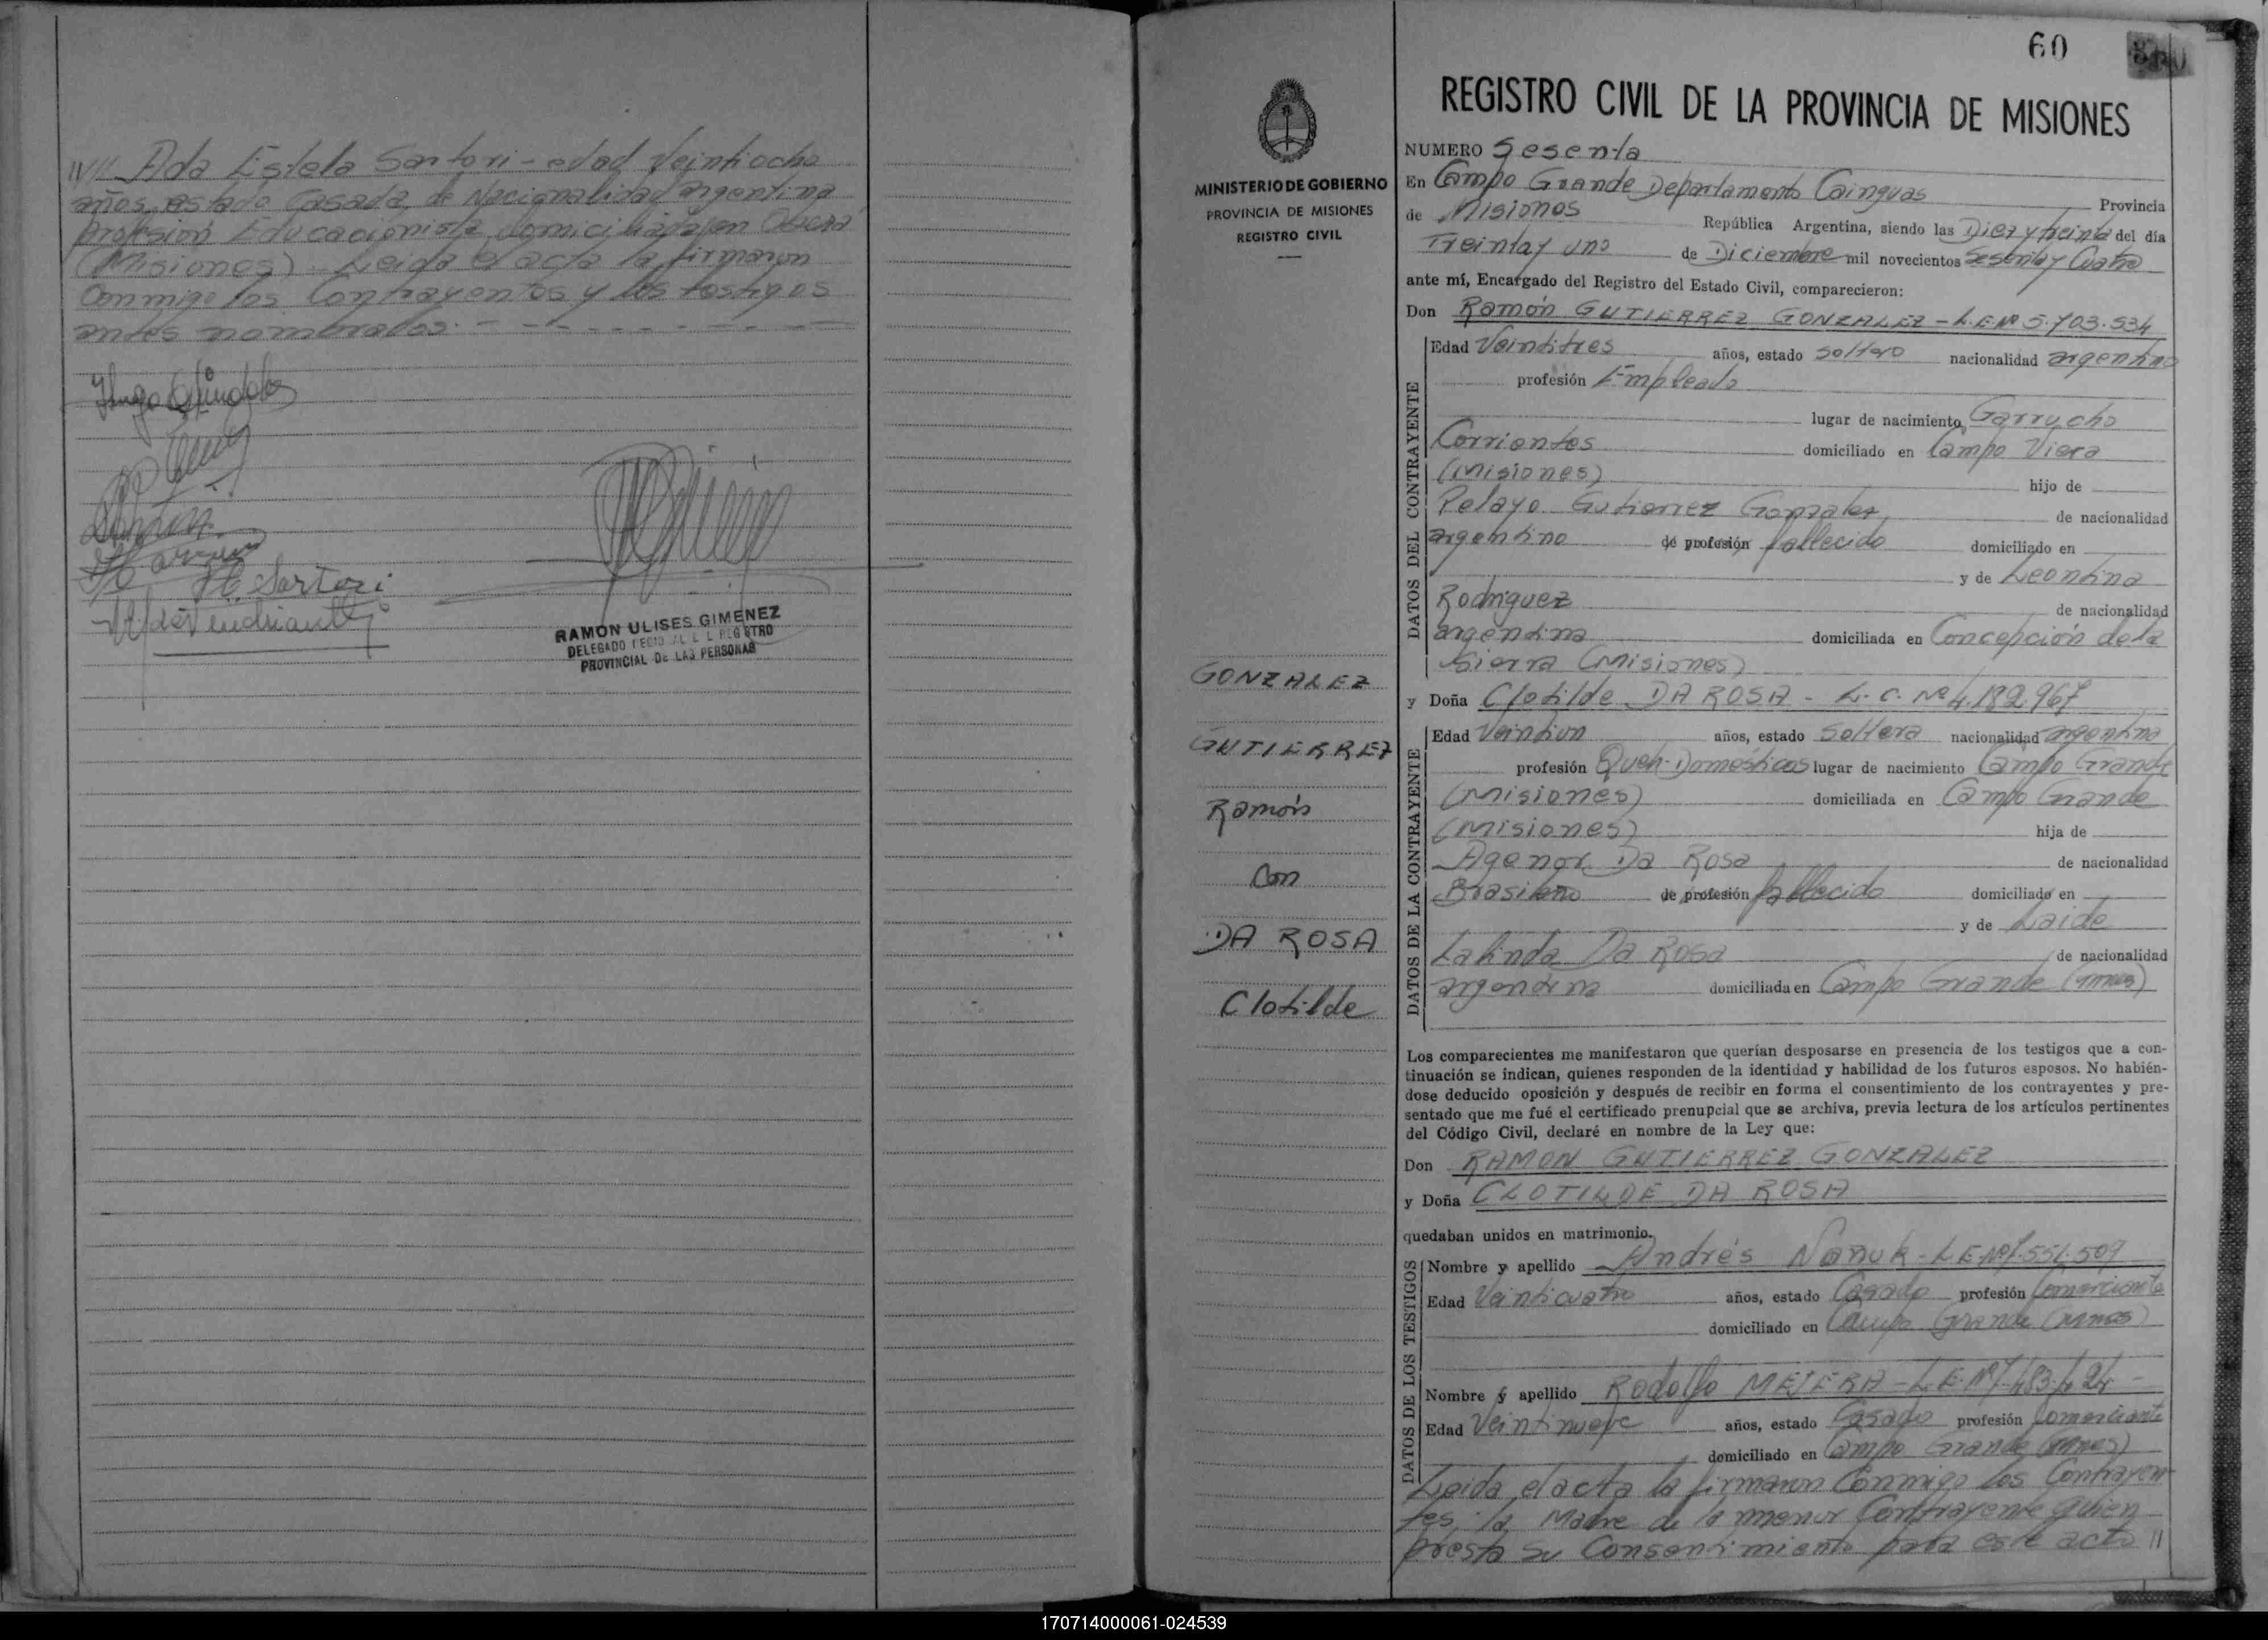 Ada Estela Sartori - edad Veintiocho
años, estado Casada, de Nacionalidad argentina
profesión Educacionista, domiciliada en Oberá
(Misiones). Leida el acta la firmaron
Conmigo los Contrayentes y los testigos
antes nombrados. - - - - - - - -
H. Sartori
RAMON ULISES GIMENEZ
DELEGADO REGIO AL L REGISTRO
PROVINCIAL DE LAS PERSONAS
60
MINISTERIO DE GOBIERNO
PROVINCIA DE MISIONES
REGISTRO CIVIL
GONZALEZ
GUTIERREZ
Ramón
Con
DA ROSA
Clotilde
REGISTRO CIVIL DE LA PROVINCIA DE MISIONES
NUMERO Sesenta
En Campo Grande Departamento Cainguas
de Misiones Provincia
República Argentina, siendo las Diez y treinta del día
Treinta y uno de Diciembre mil novecientos Sesenta y Cuatro
ante mí, Encargado del Registro del Estado Civil, comparecieron:
Don Ramón GUTIERREZ GONZALEZ - L.E Nº 5.703.534
DATOS DEL CONTRAYENTE
Edad Veintitres años, estado soltero nacionalidad argentino
profesión Empleado
lugar de nacimiento Garrucho
Corrientes domiciliado en Campo Viera
(Misiones) hijo de
Pelayo Gutierrez Gonzalez de nacionalidad
argentino de profesión fallecido domiciliado en
y de Leontina
Rodriguez de nacionalidad
argentina domiciliada en Concepción de la
Sierra (Misiones)
y Doña Clotilde DA ROSA - L. C. Nº 4.182.967
DATOS DE LA CONTRAYENTE
Edad Veintiun años, estado Soltera nacionalidad argentina
profesión Queh-Domésticos lugar de nacimiento Campo Grande
(Misiones) domiciliada en Campo Grande
(Misiones) hija de
Agenor Da Rosa de nacionalidad
Brasileño de profesión fallecido domiciliado en
y de Laide
Lalinda Da Rosa de nacionalidad
argentina domiciliada en Campo Grande (mnes)
Los comparecientes me manifestaron que querían desposarse en presencia de los testigos que a con-
tinuación se indican, quienes responden de la identidad y habilidad de los futuros esposos. No habién-
dose deducido oposición y después de recibir en forma el consentimiento de los contrayentes y pre-
sentado que me fué el certificado prenupcial que se archiva, previa lectura de los artículos pertinentes
del Código Civil, declaré en nombre de la Ley que:
Don RAMON GUTIERREZ GONZALEZ
y Doña CLOTILDE DA ROSA
quedaban unidos en matrimonio.
DATOS DE LOS TESTIGOS
Nombre y apellido Andrés - L E Nº 7.551.509
Edad Veinticuatro años, estado Casado profesión Comerciante
domiciliado en Campo Grande (mnes)
Nombre y apellido Rodolfo MEJERA - L.E. Nº
Edad Veintinueve años, estado Casado profesión Comerciante
domiciliado en Campo Grande (mnes)
Leida el acta la firmaron Conmigo los Contrayen-
tes, la Madre de la menor Contrayente quien
presta su Consentimiento para este acto //
170714000061-024539